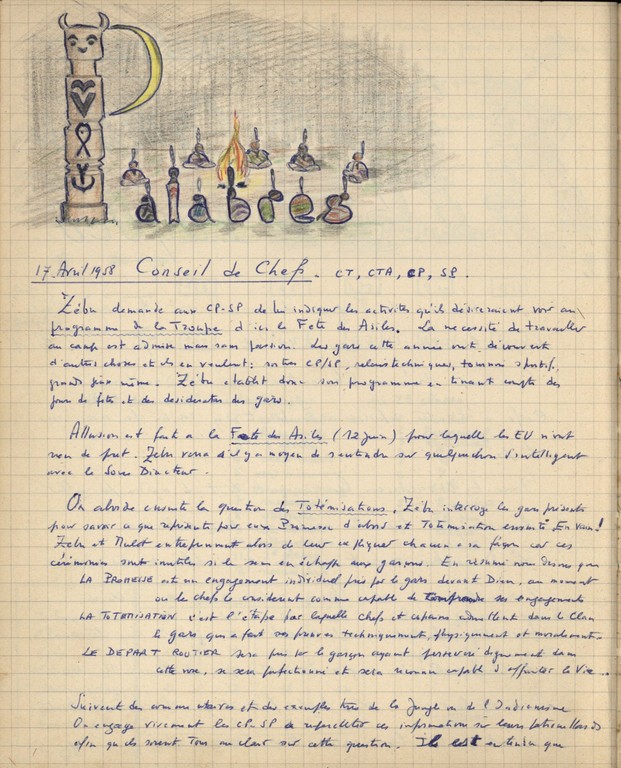 Palabres
17. Avril 1958 Conseil de Chefs. CT, CTA, CP, SP.
Zébu demande aux CP-SP de lui indiquer les activités qu'ils désireraient voir au
programme de la Troupe d'ici la Fête des Asiles. La nécessité de travailler
au camp est admise mais sans passion. Les gars cette année ont découvert
d'autres choses et ils en veulent: sorties CP/SP, relais techniques, tournoi sportif,
grands jeux même. Zébu établit donc son programme en tenant compte des
jours de fête et des desideratas des gars.
Allusion est faite à la Fête des Asiles (12 juin) pour laquelle les EU n'ont
rien de prêt. Zébu verra s'il y a moyen de s'entendre sur quelque chose d'intelligent
avec le Sous Directeur.
On aborde ensuite la question des Totémisations. Zébu interroge les gars présents
pour savoir ce que représente pour eux Promesse d'abord et Totémisation ensuite. En vain!
Zébu et Mulot entreprennent alors de leur expliquer chacun à sa façon car ces
cérémonies sont inutiles si le sens en échappe aux garçons. En résumé nous disons que
LA PROMESSE est un engagement individuel pris par le gars devant Dieu, au moment
où le chef le considérant comme capable de comprendre ses engagements
LA TOTEMISATION c'est l'étape par laquelle chefs et copains admettent dans le Clan
le gars qui a fait ses preuves techniquement, physiquement et moralement.
LE DEPART ROUTIER sera pris par le garçon ayant persévéré dignement dans
cette voie, se sera perfectionné et sera reconnu capable d'affronter la Vie...
Suivent des commentaires et des exemples tirés de la Jungle ou de l'Indianisme
On engage vivement les CP-SP de répercuter ces informations sur leurs patrouillards
afin qu'ils soient tous au clair sur cette question. Il est entendu que